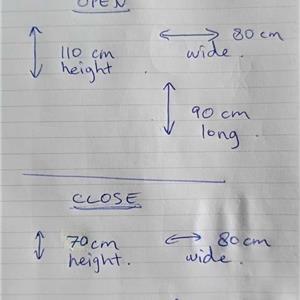 OPEN
110 cm height
80 cm wide.
90 cm long.
CLOSE
70cm height.
80cm wide.